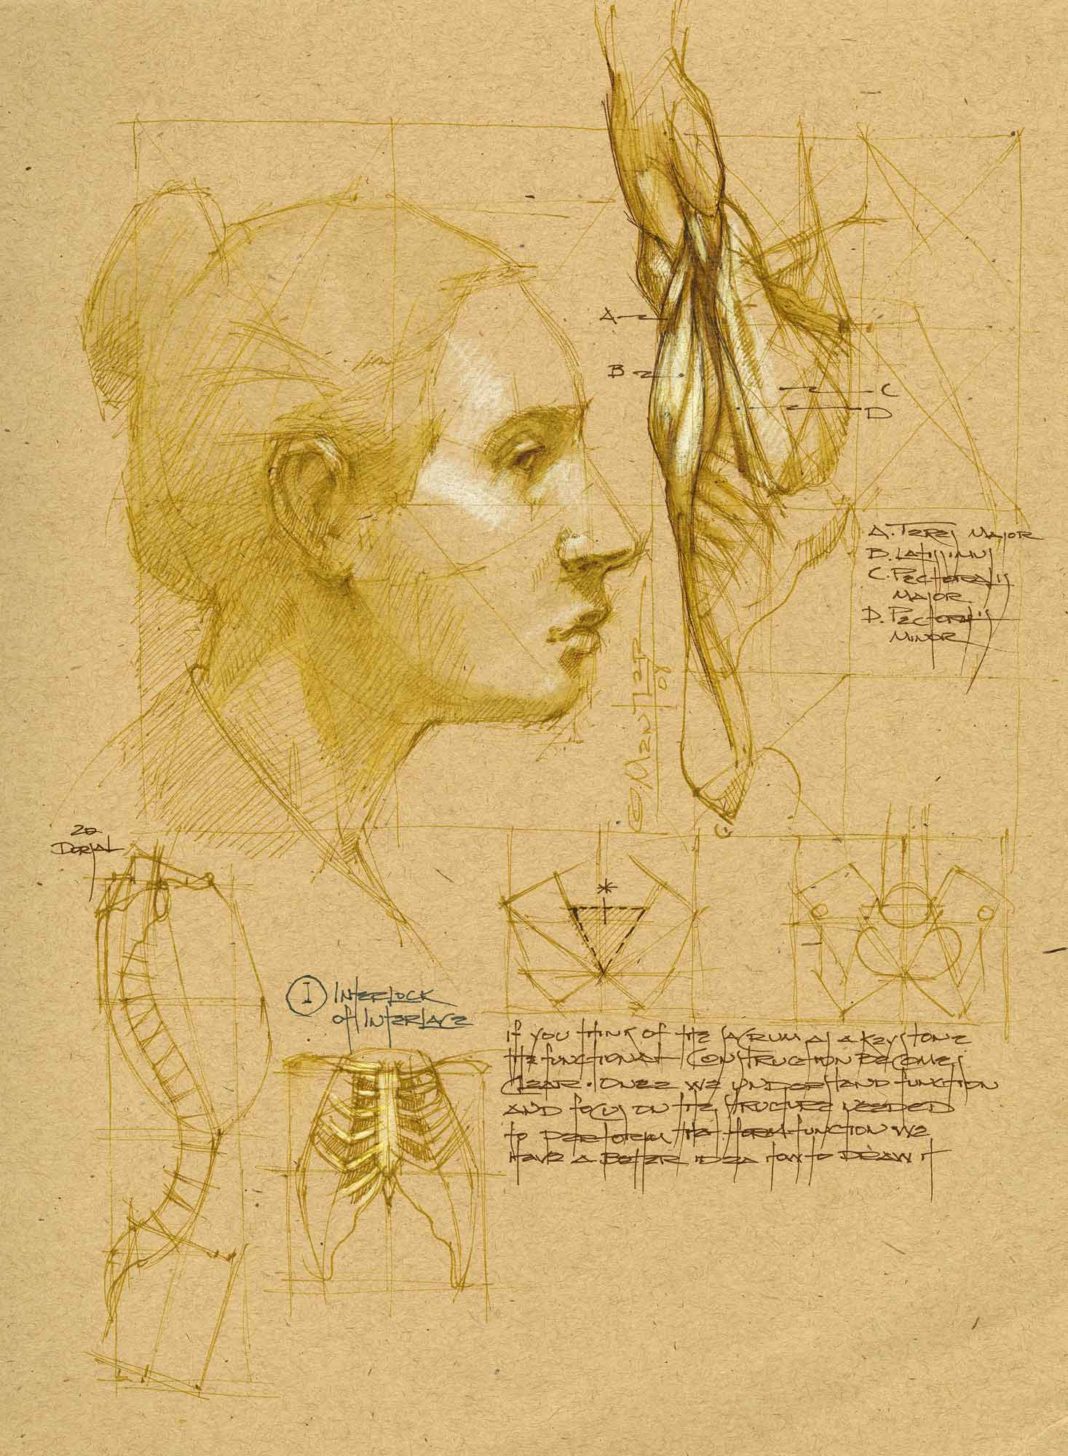 A
B
C
D
A. Teres Major
B. Latissimus
C. Pectoralis
Major
D. Pectoralis
Minor
© Mentler
01
20
Dorsal
*
I Interlock
of Interlace
If you think of the sacrum as a keystone
the functional construction becomes
clear. Once we understand function
and focus on the structure needed
to perform that function we
have a better idea how to draw it